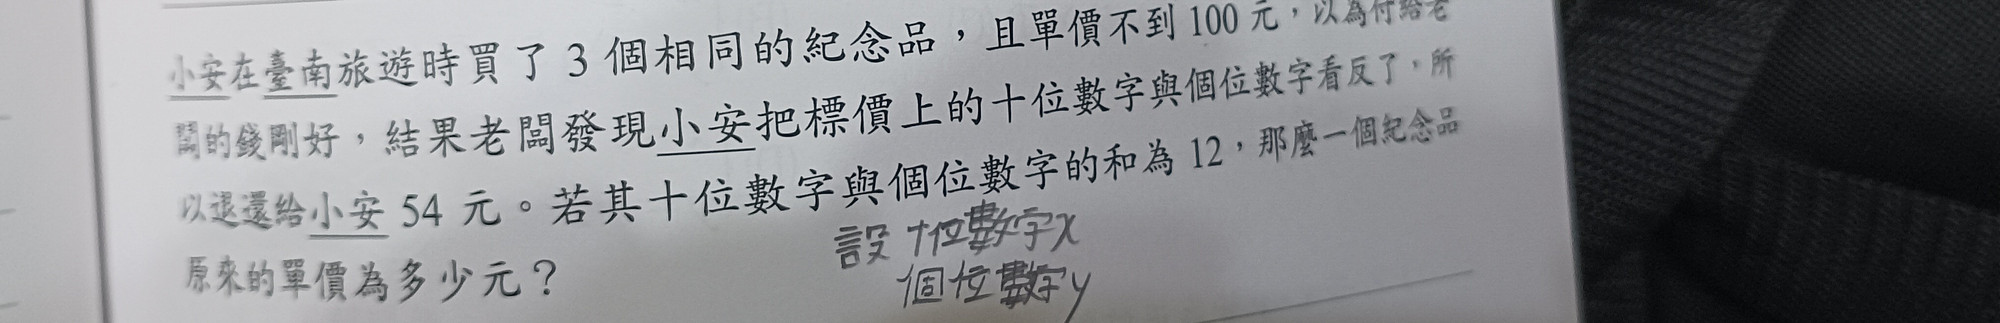 小安在臺南旅遊時買了 3 個相同的紀念品，且單價不到 100 元，以為付給老
闆的錢剛好，結果老闆發現小安把標價上的十位數字與個位數字看反了，所
以退還給小安 54 元。若其十位數字與個位數字的和為 12，那麼一個紀念品
原來的單價為多少元？
設十位數字x
個位數字y